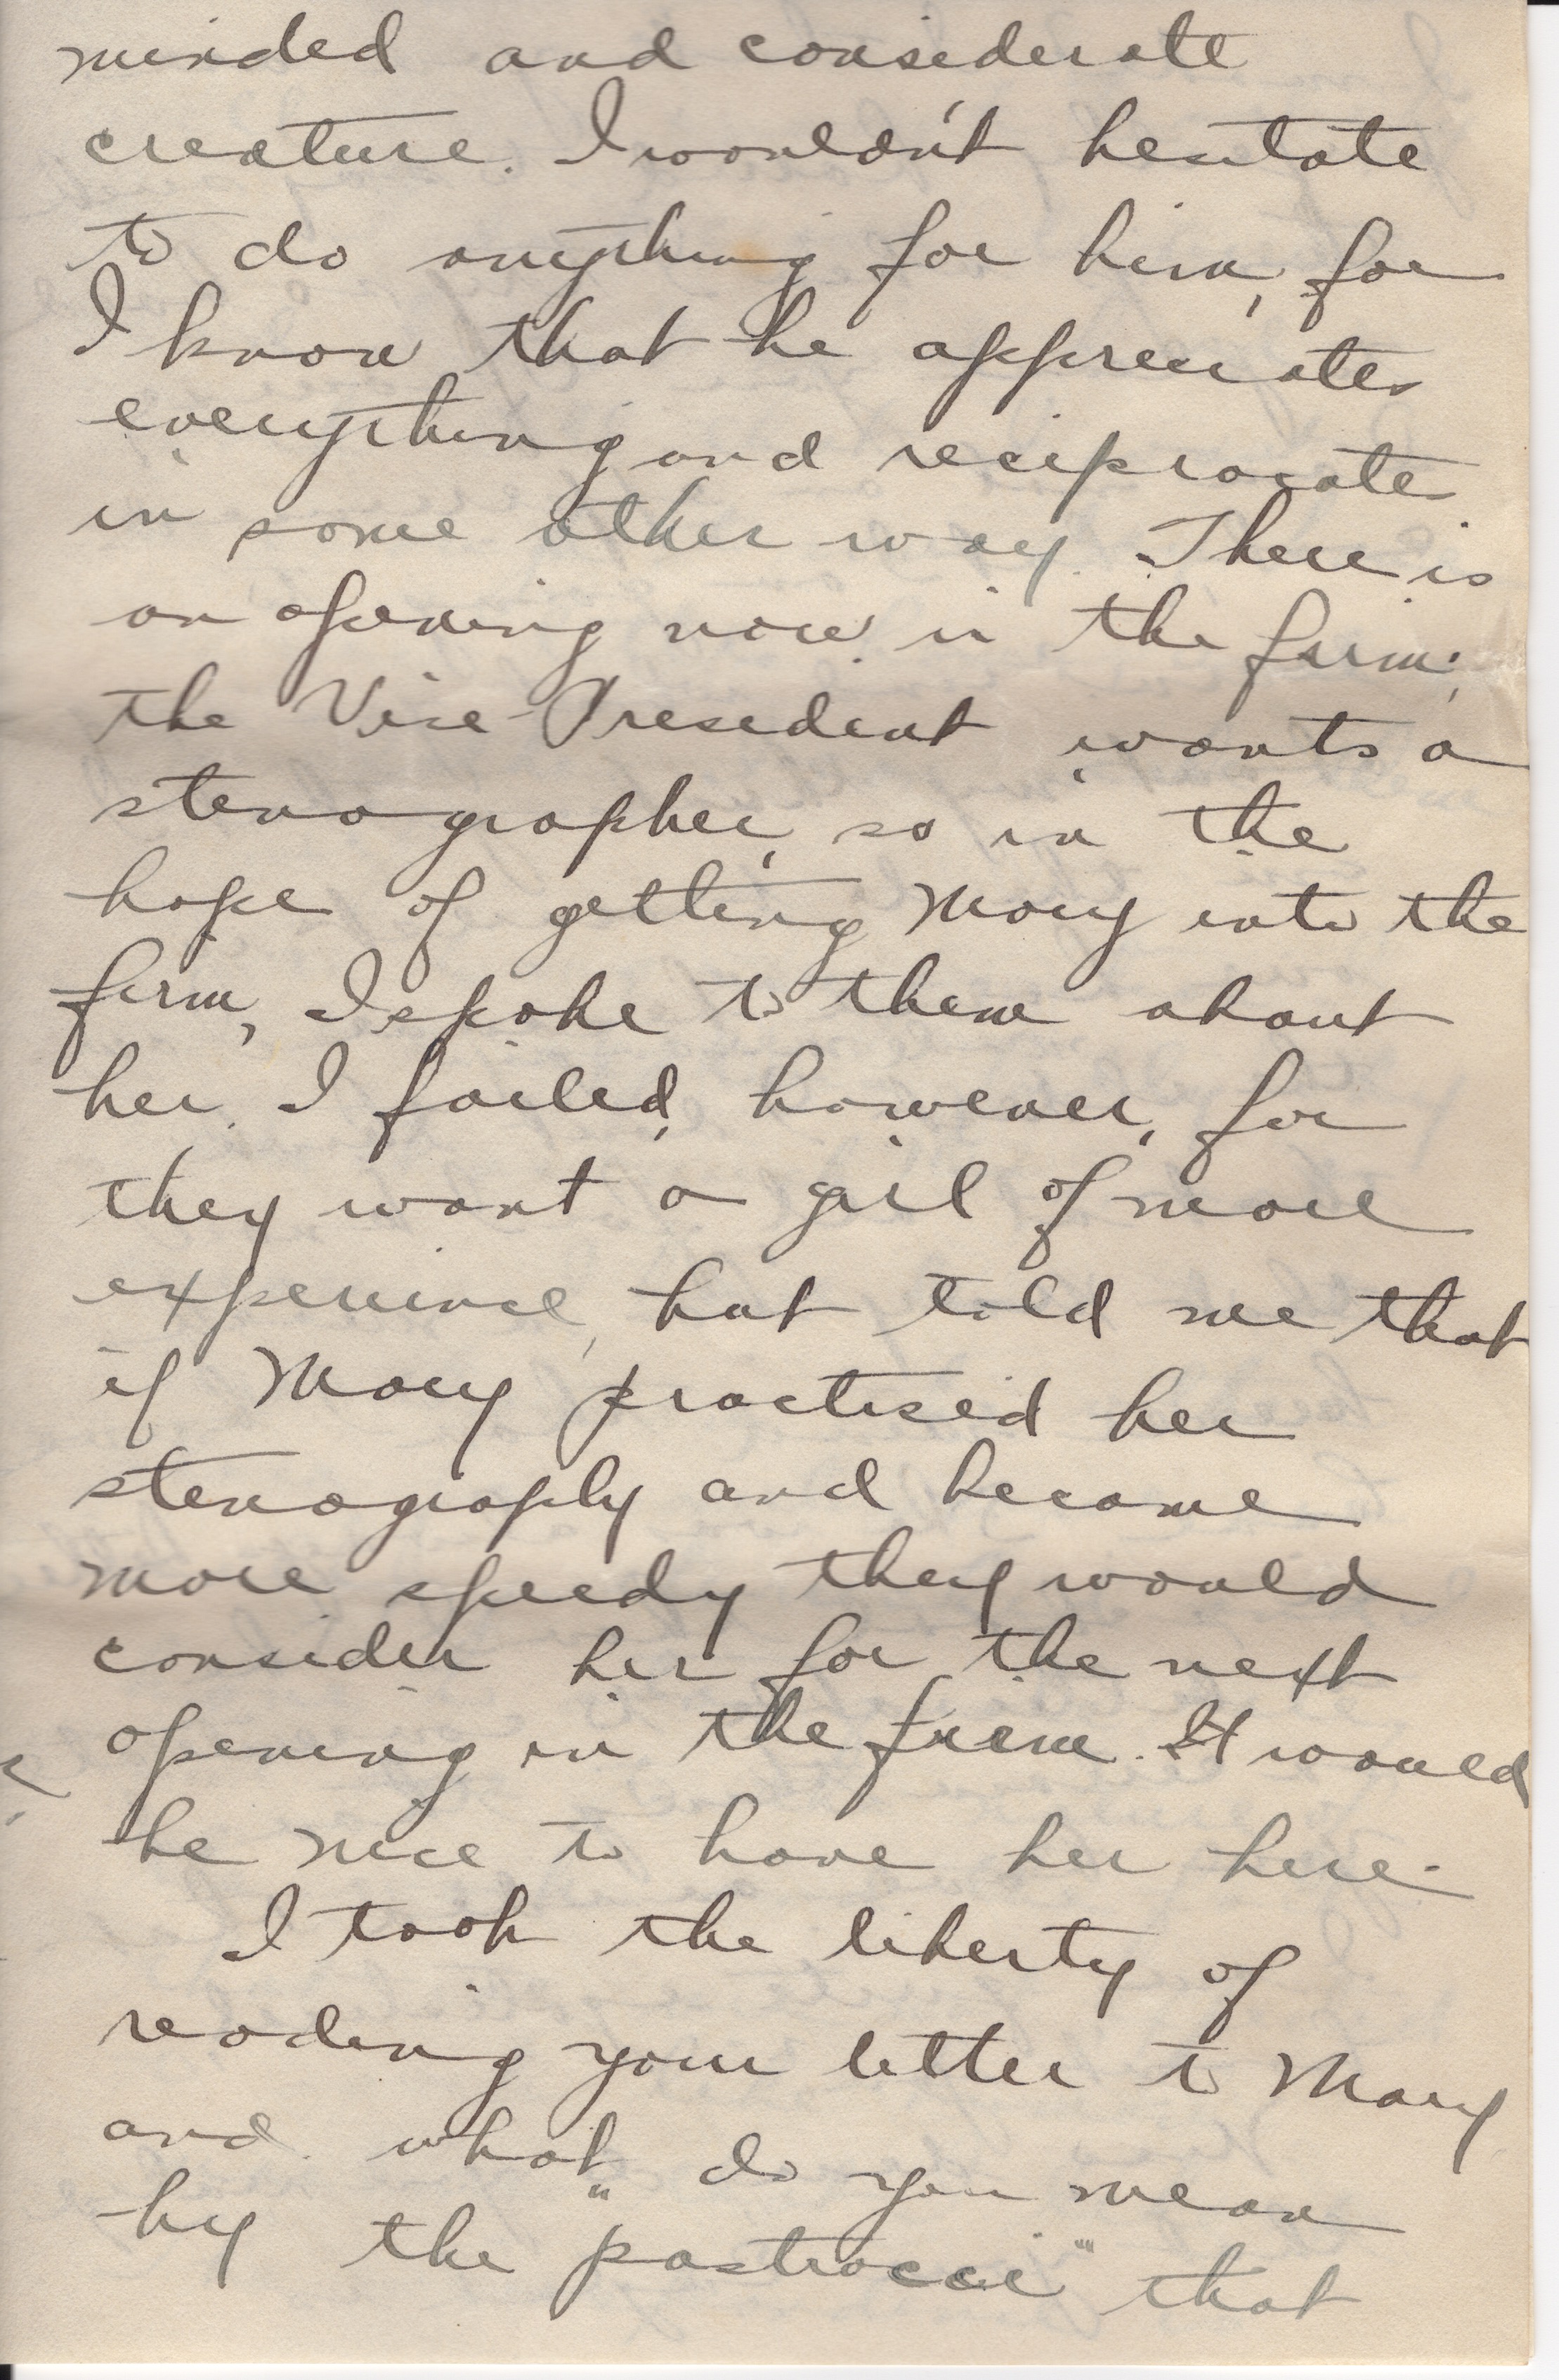 minded and considerate
creature. I wouldn't hesitate
to do anything for him, for
I know that he appreciates
everything and reciprocates
in some other way. There is
an opening now in the firm;
the Vice-President wants a
stenographer, so in the
hope of getting Mary into the
firm, I spoke to them about
her. I failed, however, for
they want a girl of more
experience, but told me that
if Mary practised her
stenography and became
more speedy they would
consider her for the next
opening in the firm. It would
be nice to have her here.
I took the liberty of
reading your letter to Mary
and what do you mean
by the "pastrocci" that